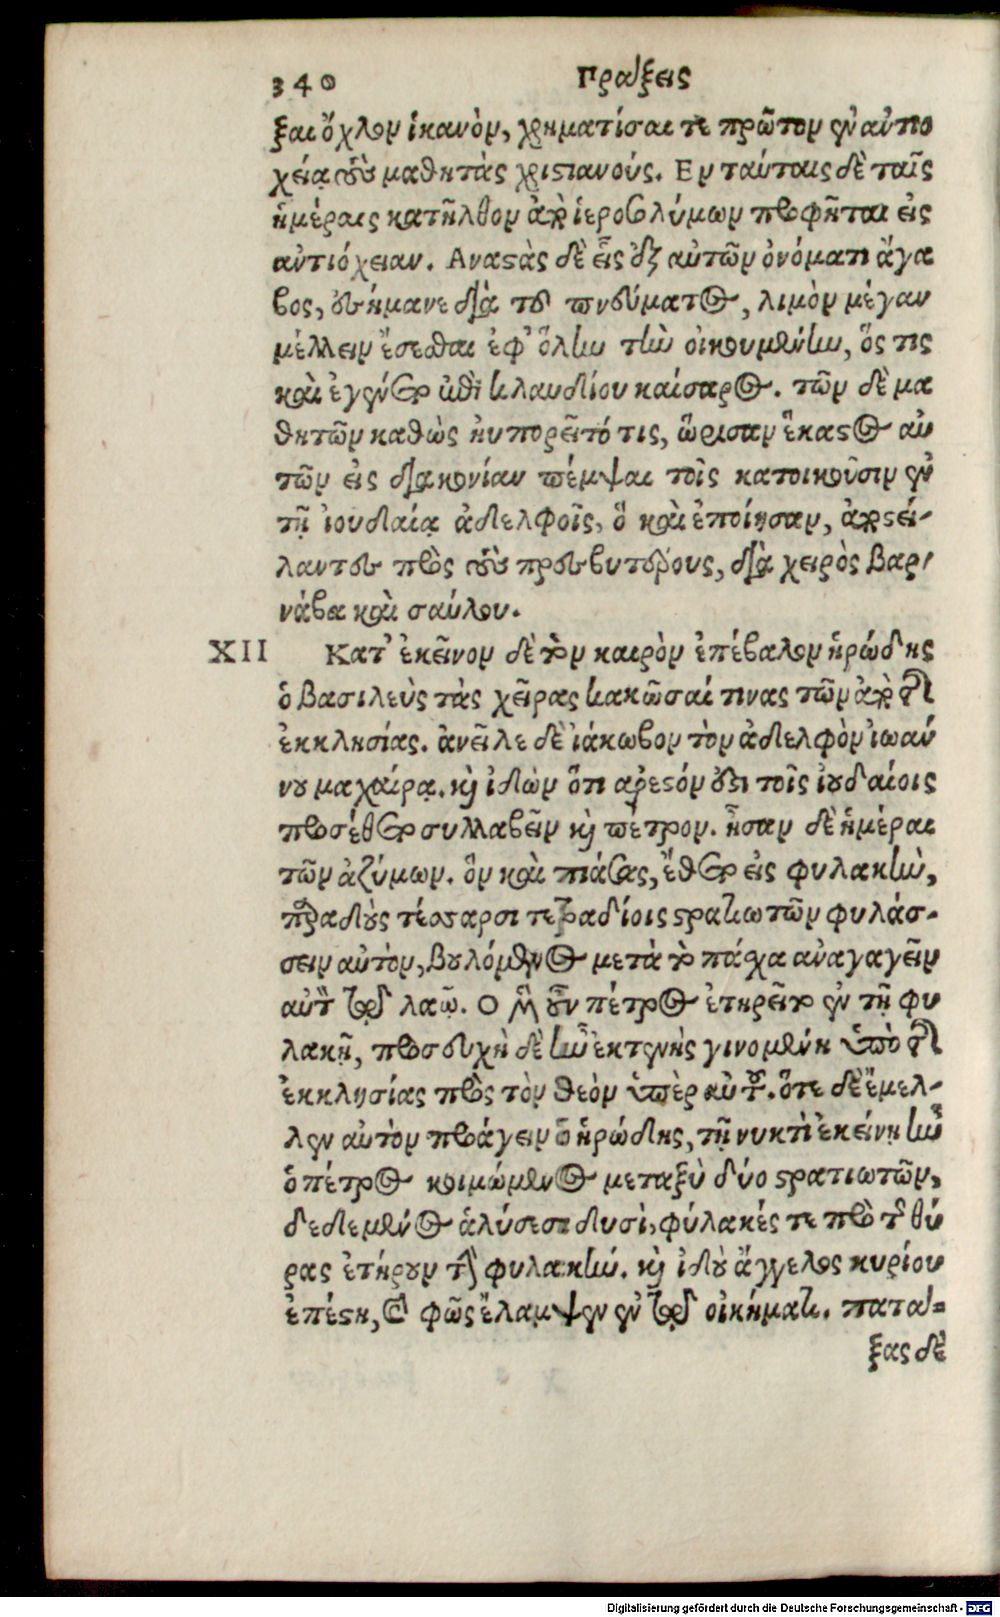 340 Πράξεις
ξαι ὄχλον ἱκανὸν, χρηματίσαι τε πρῶτον ἐν ἀντιο
χείᾳ τοὺς μαθητὰς χριστιανούς. Εν ταύταις δὲ ταῖς
ἡμέραις κατῆλθον ἀπὸ ἱεροσολύμων προφῆται εἰς
αὐτιόχειαν. Αναστὰς δὲ εἷς ἐξ αὐτῶν ὀνόματι ἄγα
βος, ἐσήμανε διὰ τοῦ πνεύματος, λιμὸν μέγαν
μέλλειν ἔσεσθαι ἐφ' ὅλην τὴν οἰκουμένην, ὅς τις
καὶ ἐγένετο ἐπὶ κλαυδίου καίσαρος. τῶν δὲ μα
θητῶν καθὼς ηὐπορεῖτό τις, ὥρισαν ἕκαστος αὐ
τῶν εἰς διακονίαν πέμψαι τοῖς κατοικοῦσιν ἐν
τῇ ἰουδαίᾳ ἀδελφοῖς, ὃ καὶ ἐποίησαν, ἀποστεί-
λαντες πρὸς τοὺς πρεσβυτέρους, διὰ χειρὸς βαρ-
νάβα καὶ σαύλου.
XII Κατ' ἐκεῖνον δὲ τὸν καιρὸν ἐπέβαλον ἡρώδης
ὁ βασιλεὺς τὰς χεῖρας κακῶσαί τινας τῶν ἀπὸ τῆς
ἐκκλησίας. ἀνεῖλε δὲ ἰάκωβον τὸν ἀδελφὸν ἰωάν
νου μαχαίρᾳ. καὶ ἰδὼν ὅτι ἀρεστόν ἐστι τοῖς ἰουδαίοις
προσέθετο συλλαβεῖν καὶ πέτρον. ἦσαν δὲ ἡμέραι
τῶν ἀζύμων. ὃν καὶ πιάσας, ἔθετο εἰς φυλακὴν,
παραδοὺς τέσσαρσι τετραδίοις στρατιωτῶν φυλάσ-
σειν αὐτὸν, βουλόμενος μετὰ τὸ πάσχα ἀναγαγεῖν
αὐτὸν τῷ λαῷ. Ο μὲν οὖν πέτρος ἐτηρεῖτο ἐν τῇ φυ
λακῇ, προσευχὴ δὲ ἦν ἐκτενὴς γινομένη ὑπὸ τῆς
ἐκκλησίας πρὸς τὸν θεὸν ὑπὲρ αὐτοῦ. ὅτε δὲ ἔμελ-
λεν αὐτὸν προάγειν ὁ ἡρώδης, τῇ νυκτὶ ἐκείνῃ ἦν
ὁ πέτρος κοιμώμενος μεταξὺ δύο στρατιωτῶν,
δεδεμένος ἁλύσεσι δυσὶ, φύλακές τε πρὸ τῆς θύ
ρας ἐτήρουν τὴν φυλακήν. καὶ ἰδοὺ ἄγγελος κυρίου
ἐπέστη, καὶ φῶς ἔλαμψεν ἐν τῷ οἰκήματι. πατά-
ξας δὲ
Digitalisierung gefördert durch die Deutsche Forschungsgemeinschaft - DFG